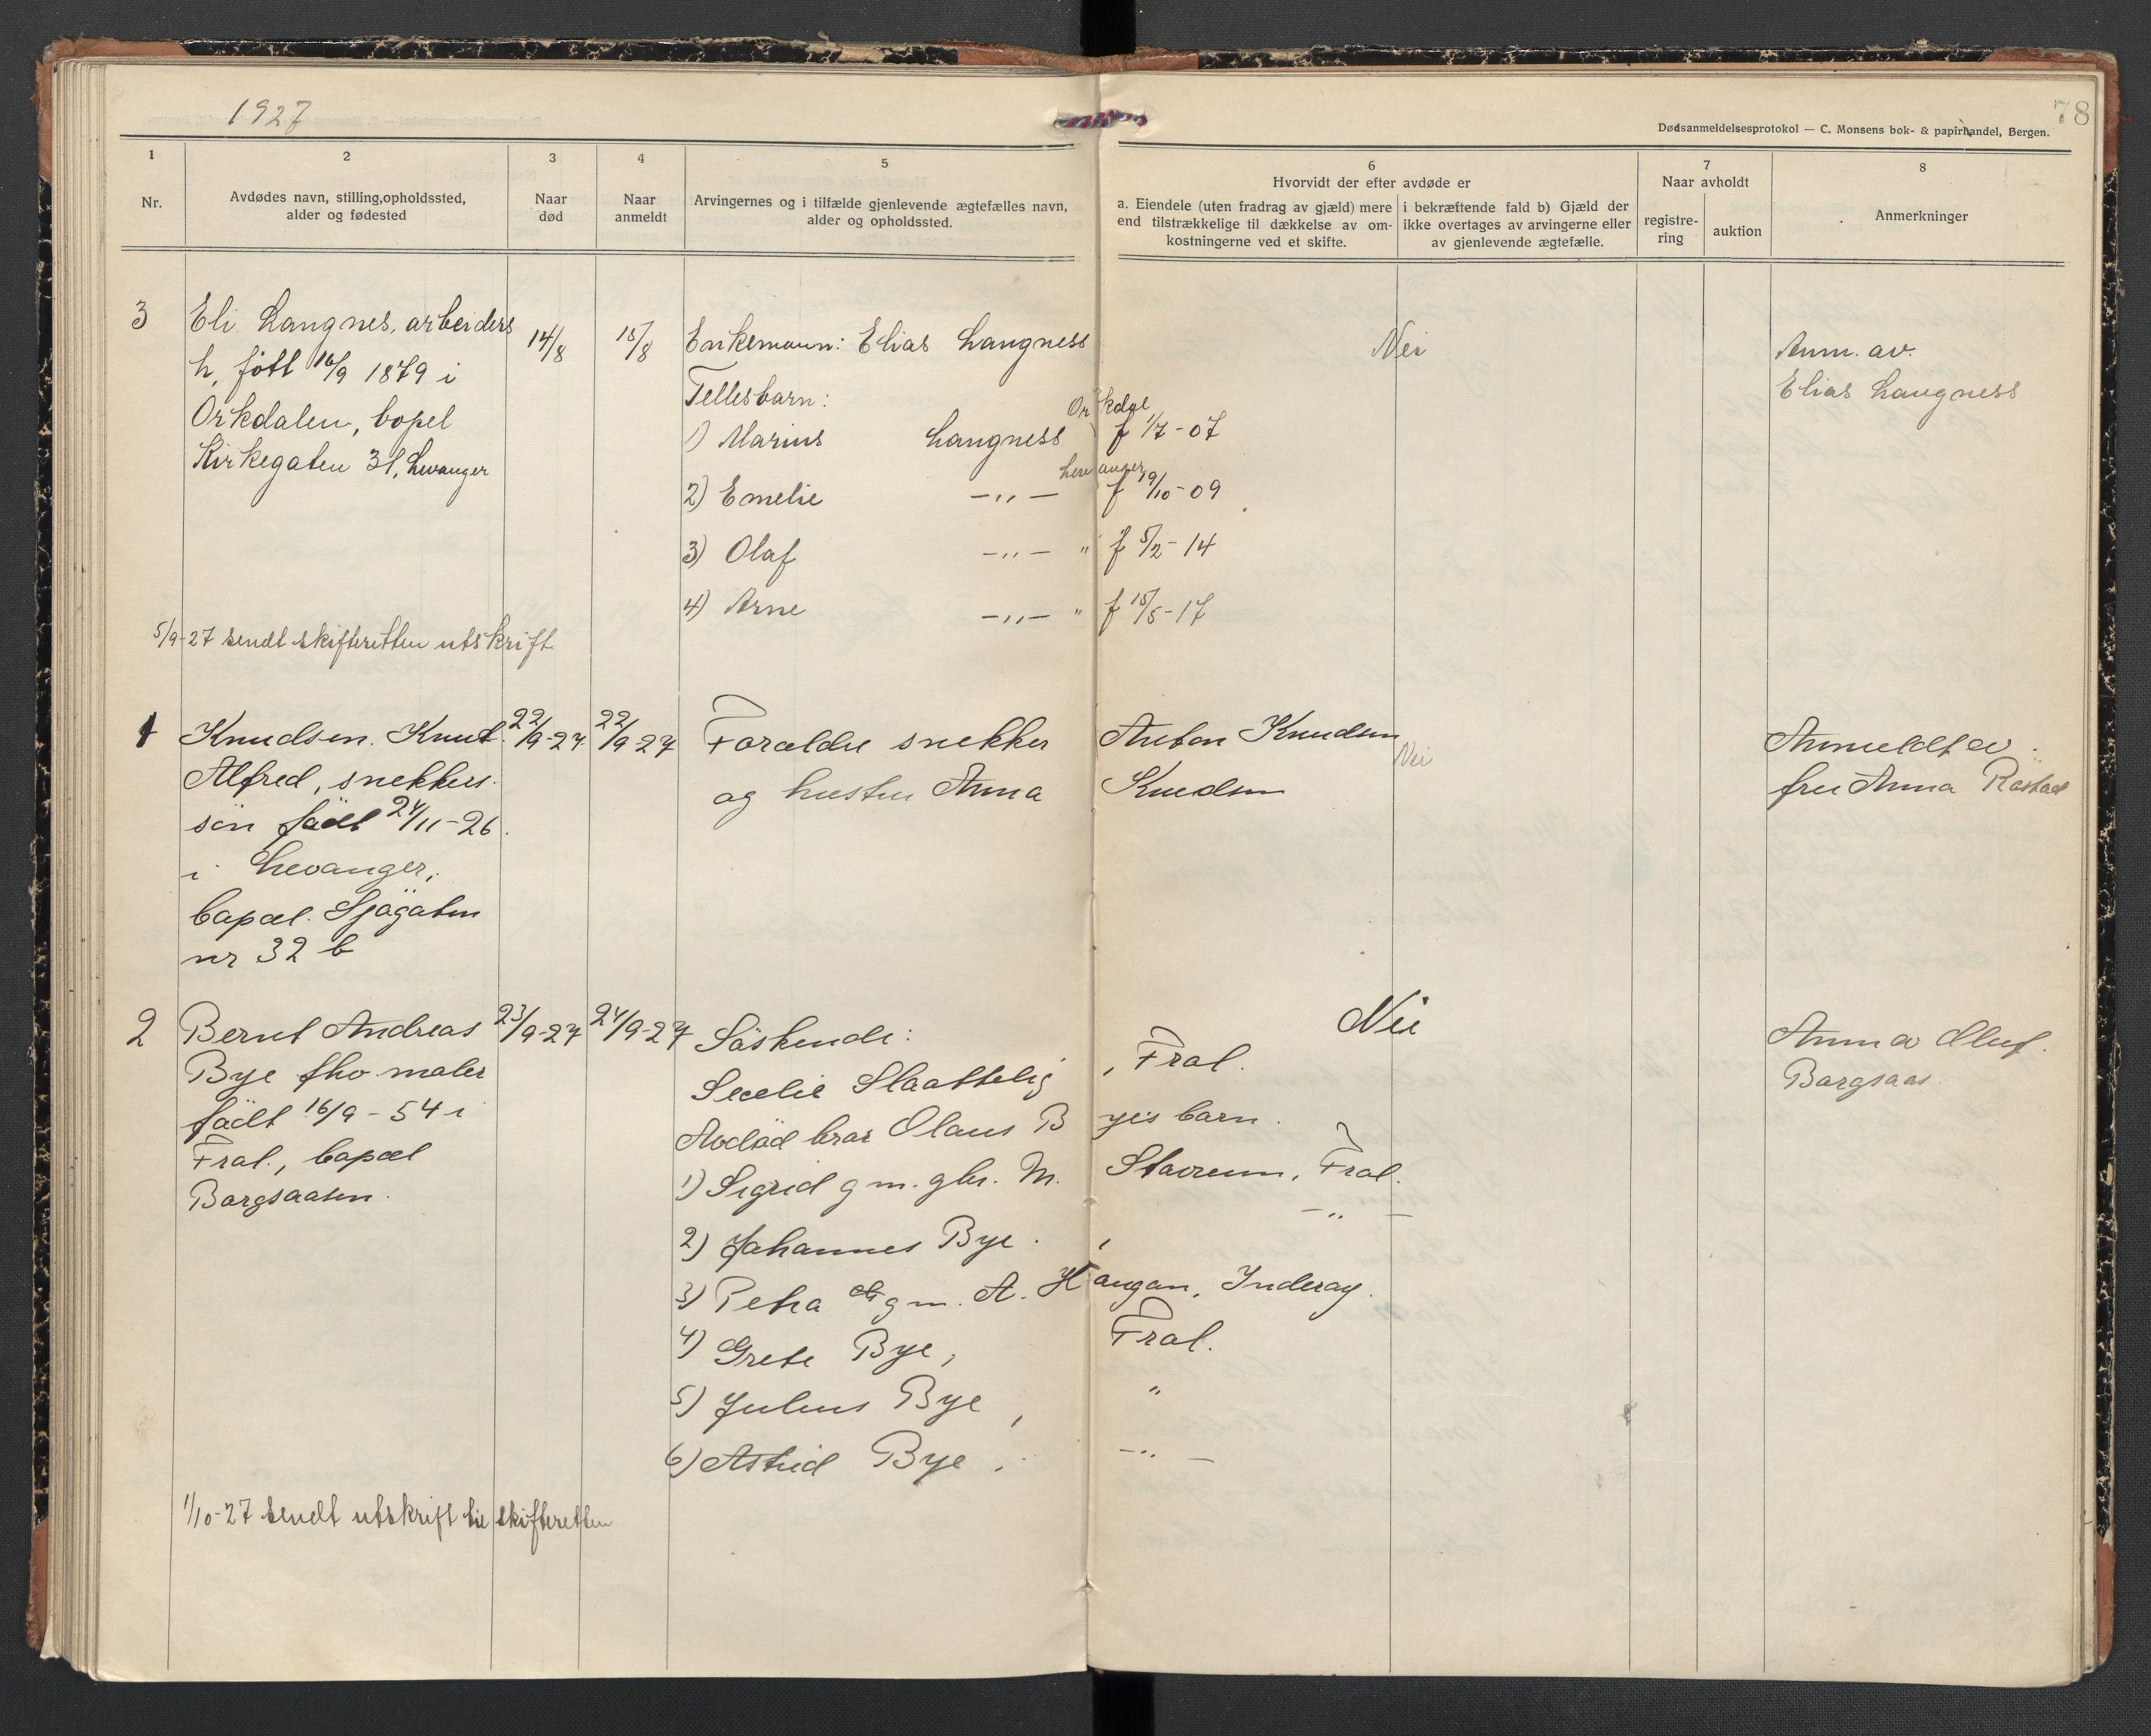 1927
78
Dødsanmeldelsesprotokol — C. Monsens bok- & papirhandel, Bergen.
1
2
3
4
5
6
7
8
Nr.
Avdødes navn, stilling, opholdssted,
alder og fødested
Naar
død
Naar
anmeldt
Arvingernes og i tilfælde gjenlevende ægtefælles navn,
alder og opholdssted.
Hvorvidt der efter avdøde er
a. Eiendele (uten fradrag av gjæld) mere
end tilstrækkelige til dækkelse av om-
kostningerne ved et skifte.
i bekræftende fald b) Gjæld der
ikke overtages av arvingerne eller
av gjenlevende ægtefælle.
Naar avholdt
registre-
ring
auktion
Anmerkninger
3
Eli Langnes, arbeiders
h, født 16/9 1879 i
Orkdalen, bopel
Kirkegaten 31, Levanger
14/8
15/8
Enkemann: Elias Langness
Fellesbarn:
Orkdal
1) Marius Langness f 1/7-07
Levanger
2) Emelie -„- f 19/10-09
3) Olaf -„- " f 5/2-14
4) Arne -„- " f 15/5-17
Nei
Anm. av.
Elias Langness
5/9-27 sendt skifteretten utskrift
1
Knudsen. Knut
Alfred, snekkers
søn født 24/11-26.
i Levanger,
bopæl. Sjøgaten
nr 32 b
22/9-27
22/9-27
Forældre snekker Anton Knudsen
og hustru Anna Knudsen
Nei
Anmeldt av
fru Anna Røstad
2
Bernt Andreas
Bye fho maler
født 16/9-54 i
Frol., bopæl
Borgsaasen.
23/9-27
24/9-27
Søskende:
Secelie Slaattelig, Frol.
Avdød bror Olaus Byes barn.
1) Sigrid g m. gbr. M. Stavrum, Frol.
2) Johannes Bye. , -„-
3) Petra g m. A. Haugan, Inderøy.
4) Grete Bye, Frol.
5) Julius Bye, "
6) Astrid Bye, -„-
Nei
Anm av Oluf.
Borgsaas.
1/10-27 sendt utskrift til skifteretten